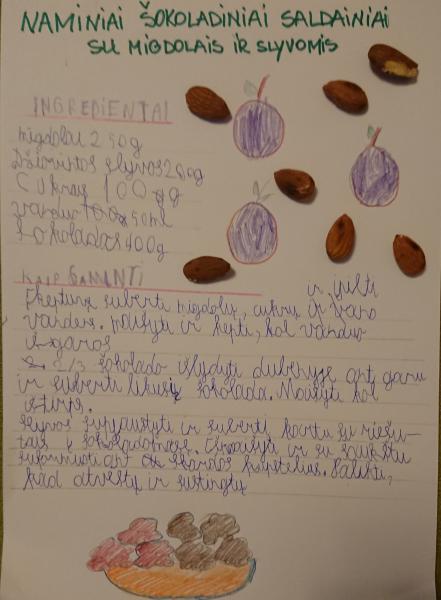 NAMINIAI ŠOKOLADINIAI SALDAINIAI
SU MIGDOLAIS IR SLYVOMIS
INGREDIENTAI
migdolai 250g
Džiovintos slyvos 200g
Cukrus 100g
vanduo 50ml
Šokoladas 400g
KAIP GAMINTI
ir įpilti
Į keptuvę suberti migdolų, cukrų
vandens. maišyti ir kepti, kol vanduo
išgaros
2. 2/3 šokolado išlydyti dubenyje ant garų
ir suberti likusį šokoladą. Maišyti kol
ištirps.
slyvas supjaustyti ir suberti kartu su riešu-
tais į šokoladą. Išmaišyti ir su šaukštu
suformuoti ant skardos krūveles. Palikti,
kad atvėstų ir sustingtų